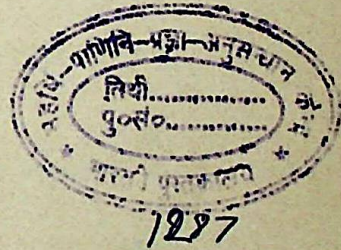 महर्षि-पाणिनि-प्रज्ञा-अनुसन्धान केन्द्र
तिथी..................
पु०सं०..................
* पुस्तकालय *
1297